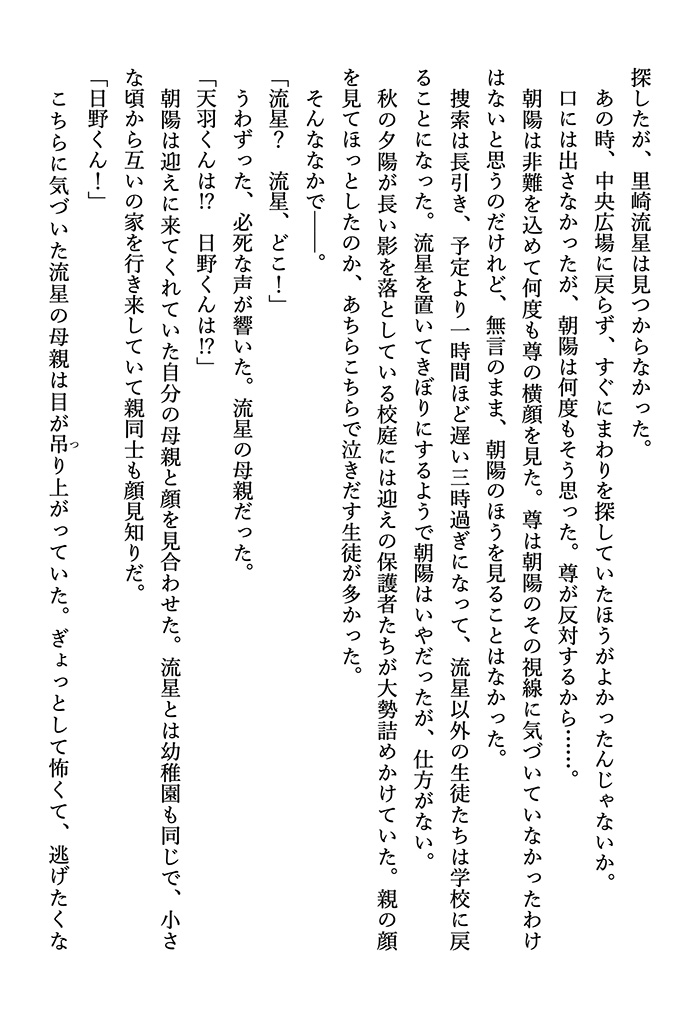 探したが、里崎流星は見つからなかった。
　あの時、中央広場に戻らず、すぐにまわりを探していたほうがよかったんじゃないか。
　口には出さなかったが、朝陽は何度もそう思った。尊が反対するから……。
　朝陽は非難を込めて何度も尊の横顔を見た。尊は朝陽のその視線に気づいていなかったわけ
はないと思うのだけれど、無言のまま、朝陽のほうを見ることはなかった。
　捜索は長引き、予定より一時間ほど遅い三時過ぎになって、流星以外の生徒たちは学校に戻
ることになった。流星を置いてきぼりにするようで朝陽はいやだったが、仕方がない。
　秋の夕陽が長い影を落としている校庭には迎えの保護者たちが大勢詰めかけていた。親の顔
を見てほっとしたのか、あちらこちらで泣きだす生徒が多かった。
　そんななかで――。
「流星？　流星、どこ！」
　うわずった、必死な声が響いた。流星の母親だった。
「天羽くんは⁉　日野くんは⁉」
　朝陽は迎えに来てくれていた自分の母親と顔を見合わせた。流星とは幼稚園も同じで、小さ
な頃から互いの家を行き来していて親同士も顔見知りだ。
「日野くん！」
　こちらに気づいた流星の母親は目が吊つり上がっていた。ぎょっとして怖くて、逃げたくな